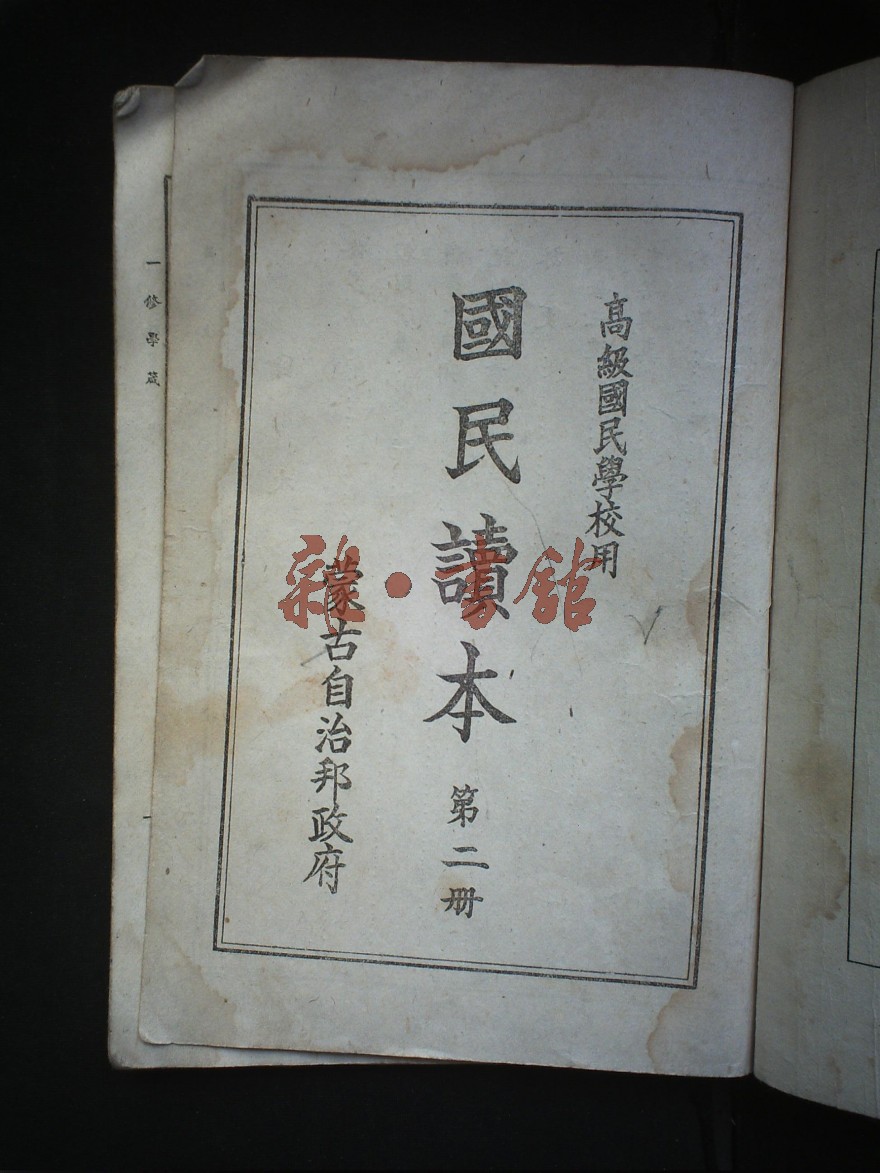 高級國民學校用
國民讀本 第二册
蒙古自治邦政府
一 修學箴
雜·書館